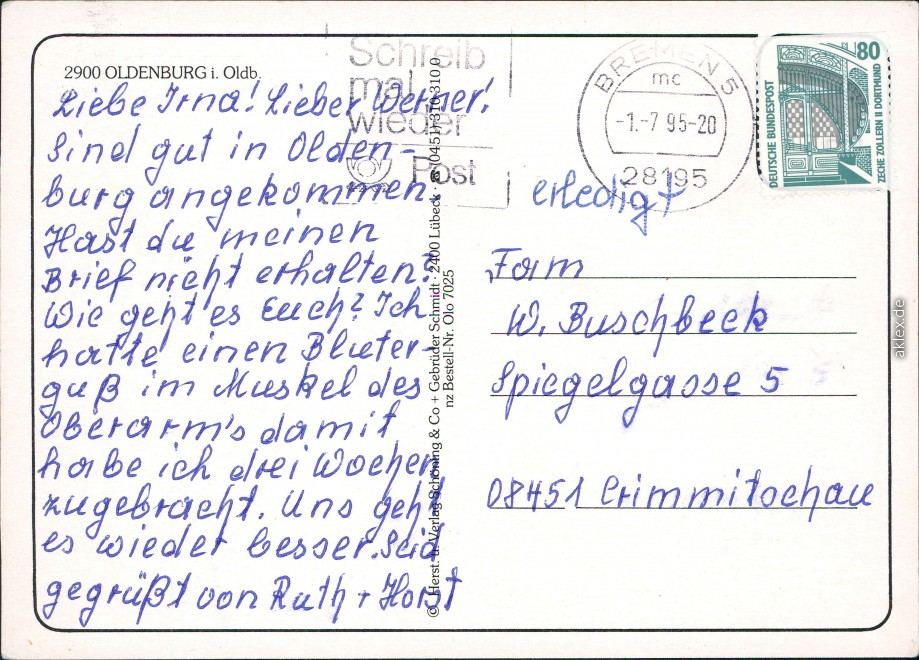 2900 OLDENBURG i. Oldb.
Liebe Irna! Lieber Werner!
Sind gut in Olden-
burg angekommen.
Hast du meinen
Brief nicht erhalten?
Wie geht es Euch? Ich
hatte einen Bluter-
guß im Muskel des
Oberarm's damit
habe ich drei Wochen
zugebracht. Uns geht
es wieder besser. Seid
gegrüßt von Ruth + Horst
© Herst. u. Verlag Schöning & Co + Gebrüder Schmidt · 2400 Lübeck · ☎ (0451) 310 310 0
nz Bestell-Nr. Olo 7025
Schreib
mal
wieder
Post
BREMEN 5
mc
-1.-7 95-20
28195
80
DEUTSCHE BUNDESPOST
ZECHE ZOLLERN II DORTMUND
erledigt
Fam
W. Buschbeck
Spiegelgasse 5
08451 Crimmitschau
aklex.de